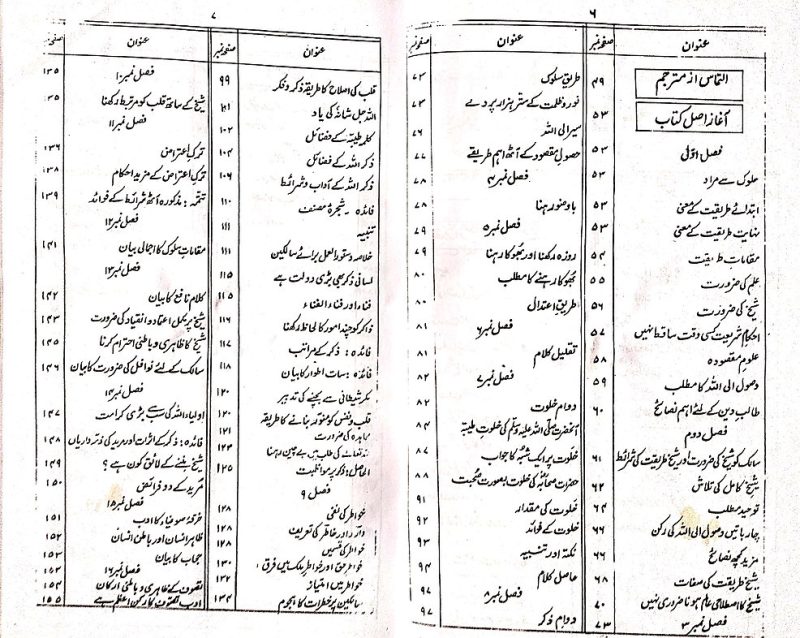 ۶
عنوان صفحہ نمبر
التماس از مترجم ۴۹
آغاز اصل کتاب ۵۳
فصل اوّل ۵۳
سلوک سے مراد ۵۳
ابتدائے طریقت کے معنی ۵۳
نہایت طریقت کے معنی ۵۳
مقامات طریقت ۵۴
علم کی ضرورت ۵۵
شیخ کی ضرورت ۵۶
احکام شریعت کسی وقت ساقط نہیں ۵۷
علوم مقصودہ ۵۸
وصول الی اللہ کا مطلب ۵۹
طالب دین کے لئے اہم نصائح ۶۰
فصل دوم
سالک کو شیخ کی ضرورت اور شیخ طریقت کی شرائط ۶۱
شیخ کامل کی تلاش ۶۲
توحید مطلب ۶۴
چار باتیں وصول الی اللہ کی رکن ۶۶
مزید کچھ نصائح ۶۶
شیخ طریقت کی صفات ۶۸
شیخ کا اصطلاحی عالم ہونا ضروری نہیں ۷۰
فصل نمبر ۳ ۷۳
عنوان صفحہ نمبر
طریق سلوک ۷۳
نور و ظلمت کے ستر ہزار پردے ۷۳
سیر الی اللہ ۷۶
حصول مقصود کے آٹھ اہم طریقے ۷۷
فصل نمبر ۴ ۷۸
باوضو رہنا ۷۸
فصل نمبر ۵ ۷۹
روزہ رکھنا اور بھوکا رہنا ۷۹
بھوکا رہنے کا مطلب ۸۰
طریق اعتدال ۸۰
فصل نمبر ۶ ۸۱
تقلیل کلام ۸۱
فصل نمبر ۷ ۸۲
دوام خلوت ۸۲
آنحضرت صلی اللہ علیہ وسلم کی خلوت طیبہ ۸۴
خلوت پر ایک شبہ کا جواب ۸۷
حضرت صحابہؓ کی خلوت بصورت صحبت ۸۸
خلوت کی مقدار ۹۱
خلوت کے فوائد ۹۲
نکتہ اور تنبیہ ۹۳
حاصل کلام ۹۴
فصل نمبر ۸ ۹۷
دوام ذکر ۹۷
۷
عنوان صفحہ نمبر
قلب کی اصلاح کا طریقہ ذکر و فکر ۹۹
اللہ جل شانہٗ کی یاد ۱۰۱
کلمہ طیبہ کے فضائل ۱۰۲
ذکر اللہ کے فضائل ۱۰۴
ذکر اللہ کے آداب و شرائط ۱۰۶
فائدہ ۔ شجرۂ مصنف ۱۱۰
تنبیہ
خلاصہ دستور العمل برائے سالکین ۱۱۱
لسانی ذکر بھی بڑی دولت ہے ۱۱۵
فناء اور فناء الفناء ۱۱۵
ذاکر کو چند امور کا لحاظ رکھنا ۱۱۶
فائدہ: ذکر کے مراتب ۱۱۷
فائدہ: سات اطوار کا بیان ۱۱۸
مکر شیطانی سے بچنے کی تدبیر ۱۲۰
قلب و نفس کو منور بنانے کا طریقہ ۱۲۰
مجاہدہ کی ضرورت ۱۲۱
خدا تعالیٰ کی طلب میں بے چین رہنا ۱۲۳
الحاصل: ذکر پر مواظبت ۱۲۵
فصل ۹
خواطر کی نفی ۱۲۸
وارد اور خاطر کی تعریف ۱۲۸
خواطر کی قسمیں ۱۲۸
خواطر حق اور خواطر ملک میں فرق ۱۳۰
خواطر میں امتیاز ۱۳۲
سالکین پر خطرات کا ہجوم ۱۳۴
عنوان صفحہ نمبر
فصل نمبر ۱۰ ۱۳۵
شیخ کے ساتھ قلب کو مرتبط رکھنا ۱۳۵
فصل نمبر ۱۱
ترک اعتراض ۱۳۶
ترک اعتراض کے مزید احکام ۱۳۸
تتمہ: مذکورہ آٹھ شرائط کے فوائد ۱۳۹
فصل نمبر ۱۲
مقامات سلوک کا اجمالی بیان ۱۴۱
فصل نمبر ۱۳
کلام نافع کا بیان ۱۴۲
شیخ پر مکمل اعتماد و انقیاد کی ضرورت ۱۴۳
شیخ کا ظاہری و باطنی احترام کرنا ۱۴۵
سالک کے لئے نوافل کی ضرورت کا بیان ۱۴۶
فصل نمبر ۱۴
اولیاء اللہ کی سب سے بڑی کرامت ۱۴۷
فائدہ: ذکر کے اثرات اور مرید کی ذمہ داریاں ۱۴۸
شیخ بننے کے لائق کون ہے؟ ۱۴۹
مرید کے دو فرائض ۱۵۰
فصل نمبر ۱۵
خرقہ صوفیاء کا ادب ۱۵۱
ظاہر انسان اور باطن انسان ۱۵۲
حجاب کا بیان ۱۵۳
فصل نمبر ۱۶ ۱۵۳
تصوف کے ظاہری و باطنی ارکان ۱۵۴
ادب تصوف کا رکن اعظم ہے ۱۵۵